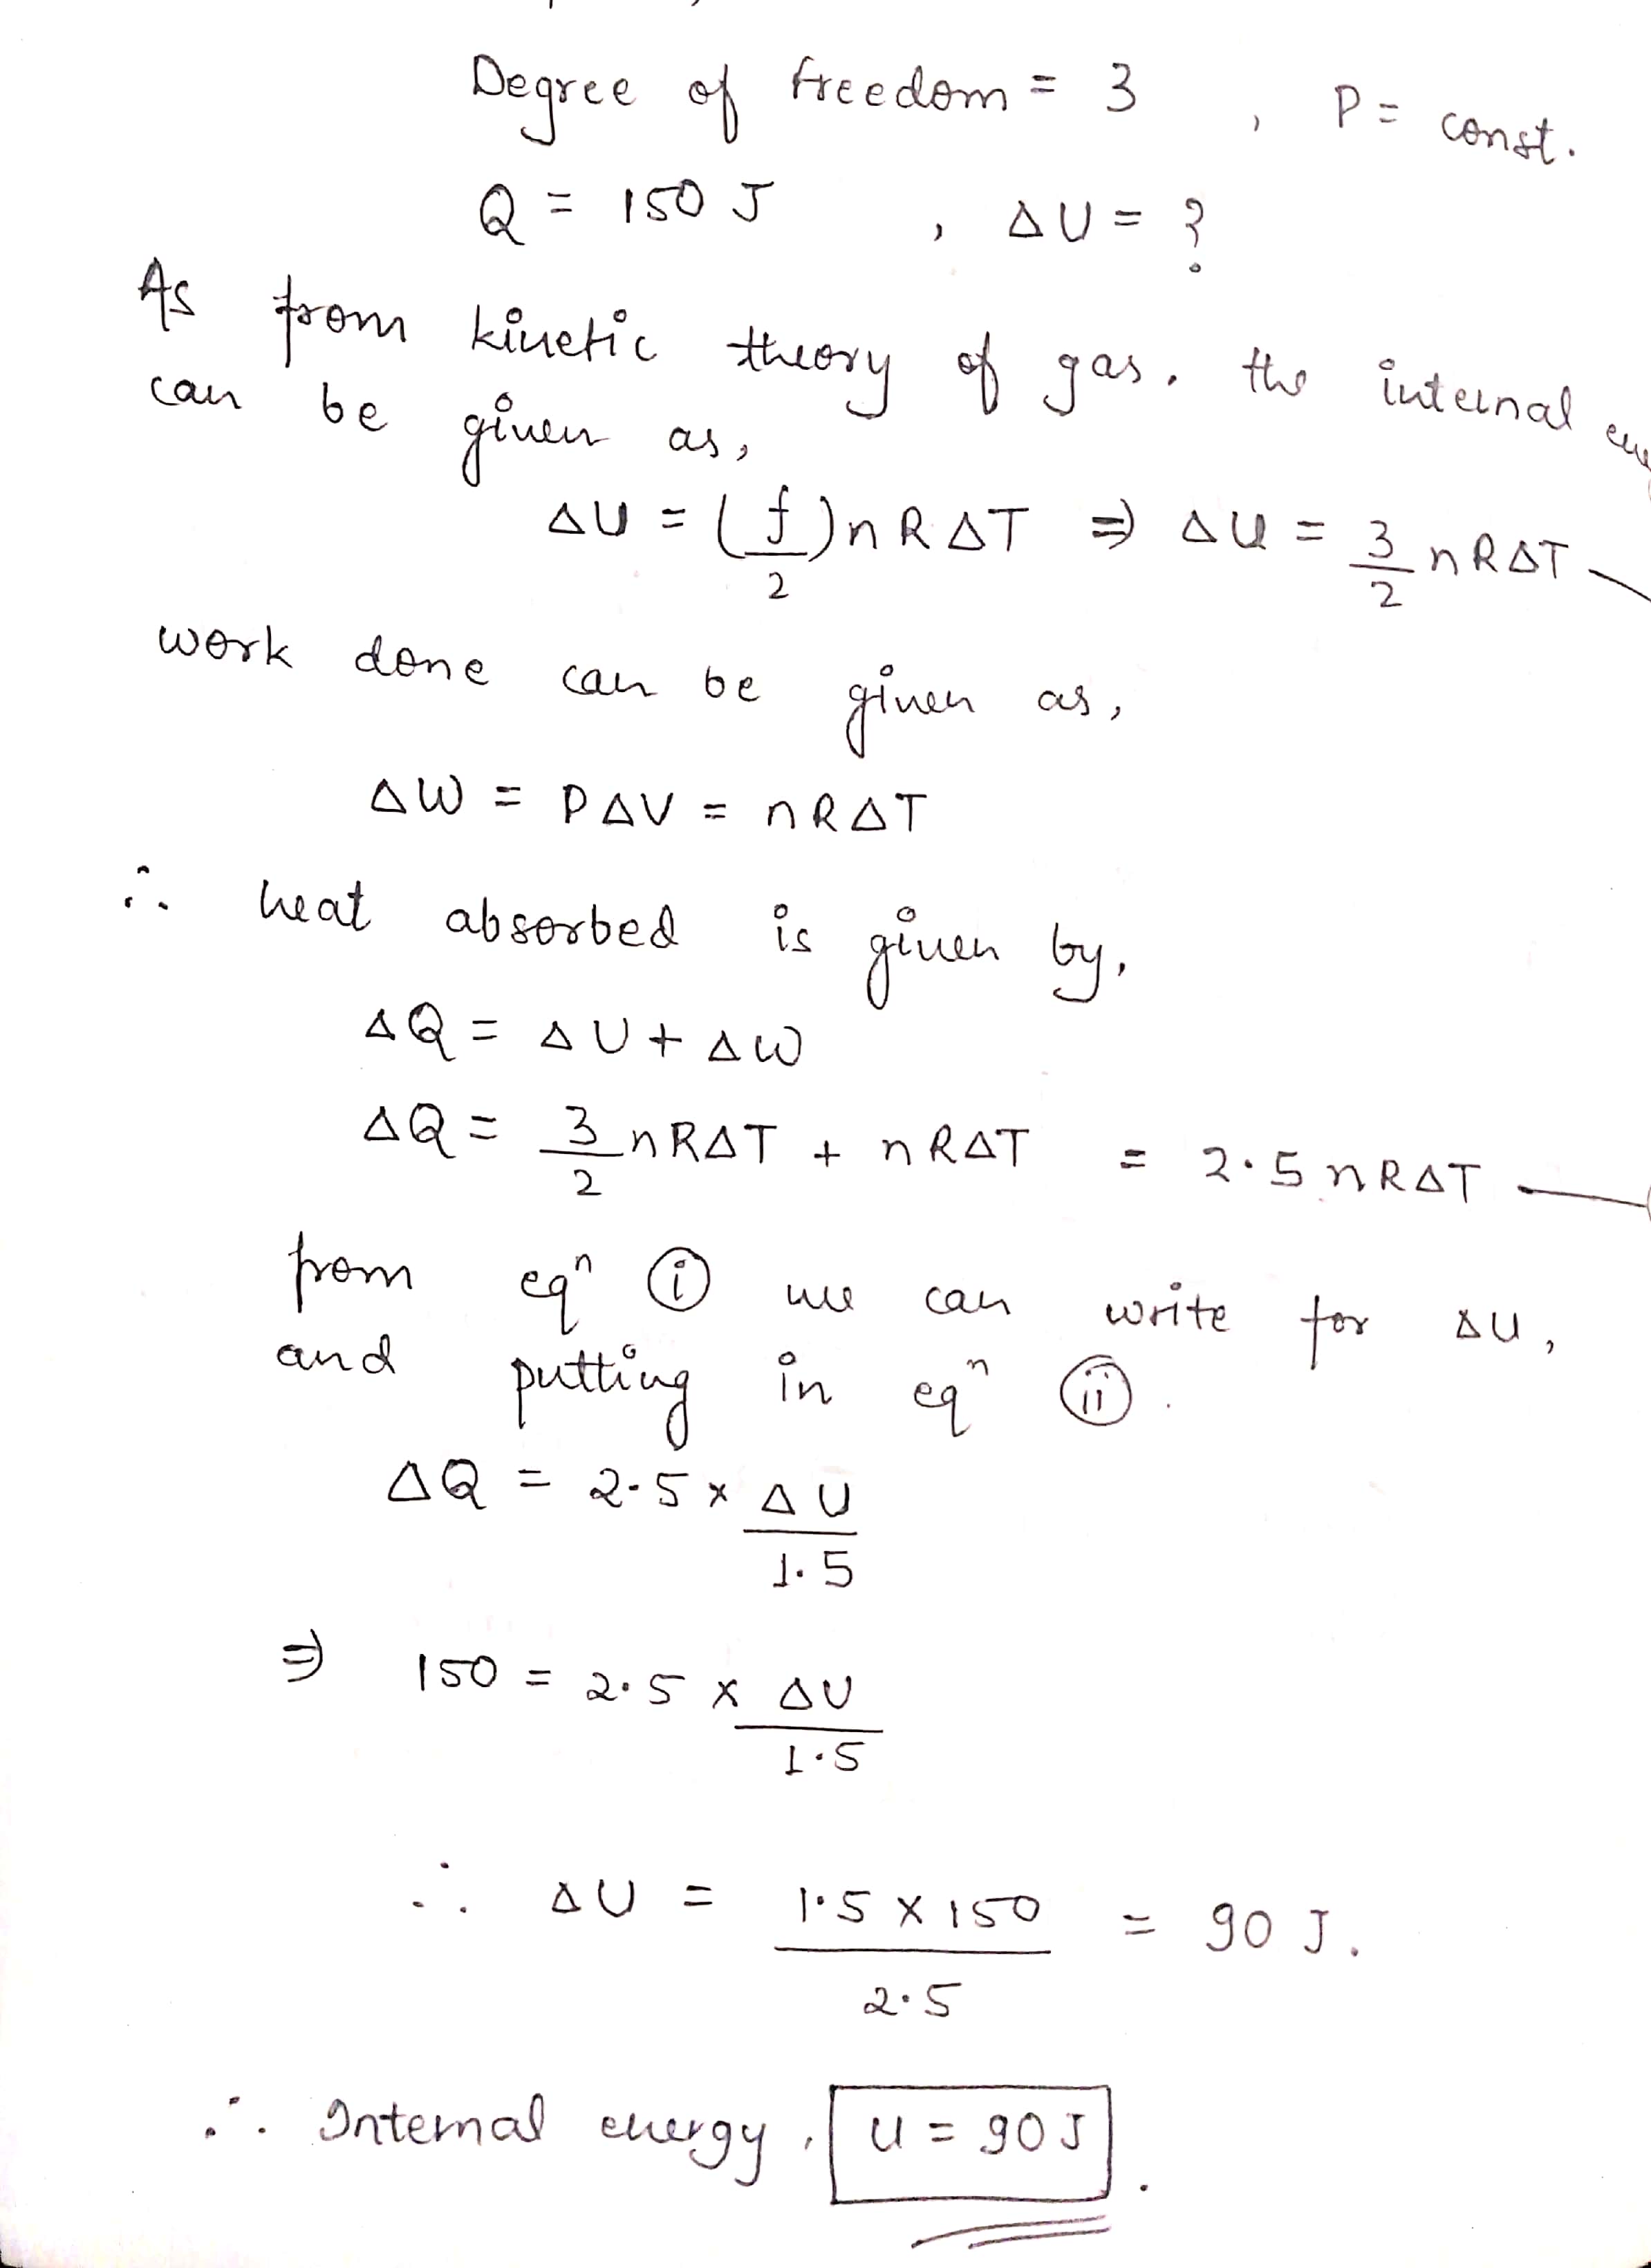 Degree of freedom = 3 , P = const.
Q = 150 J , ΔU = ?
As from kinetic theory of gas, the internal
can be given as,
ΔU = (f/2) nRΔT ⇒ ΔU = 3/2 nRΔT —
work done can be given as,
ΔW = PΔV = nRΔT
∴ heat absorbed is given by,
ΔQ = ΔU + ΔW
ΔQ = 3/2 nRΔT + nRΔT = 2.5 nRΔT —
from eqⁿ (i) we can write for ΔU,
and putting in eqⁿ (ii).
ΔQ = 2.5 × ΔU/1.5
⇒ 150 = 2.5 × ΔU/1.5
∴ ΔU = 1.5 × 150/2.5 = 90 J.
∴ Internal energy, U = 90 J.